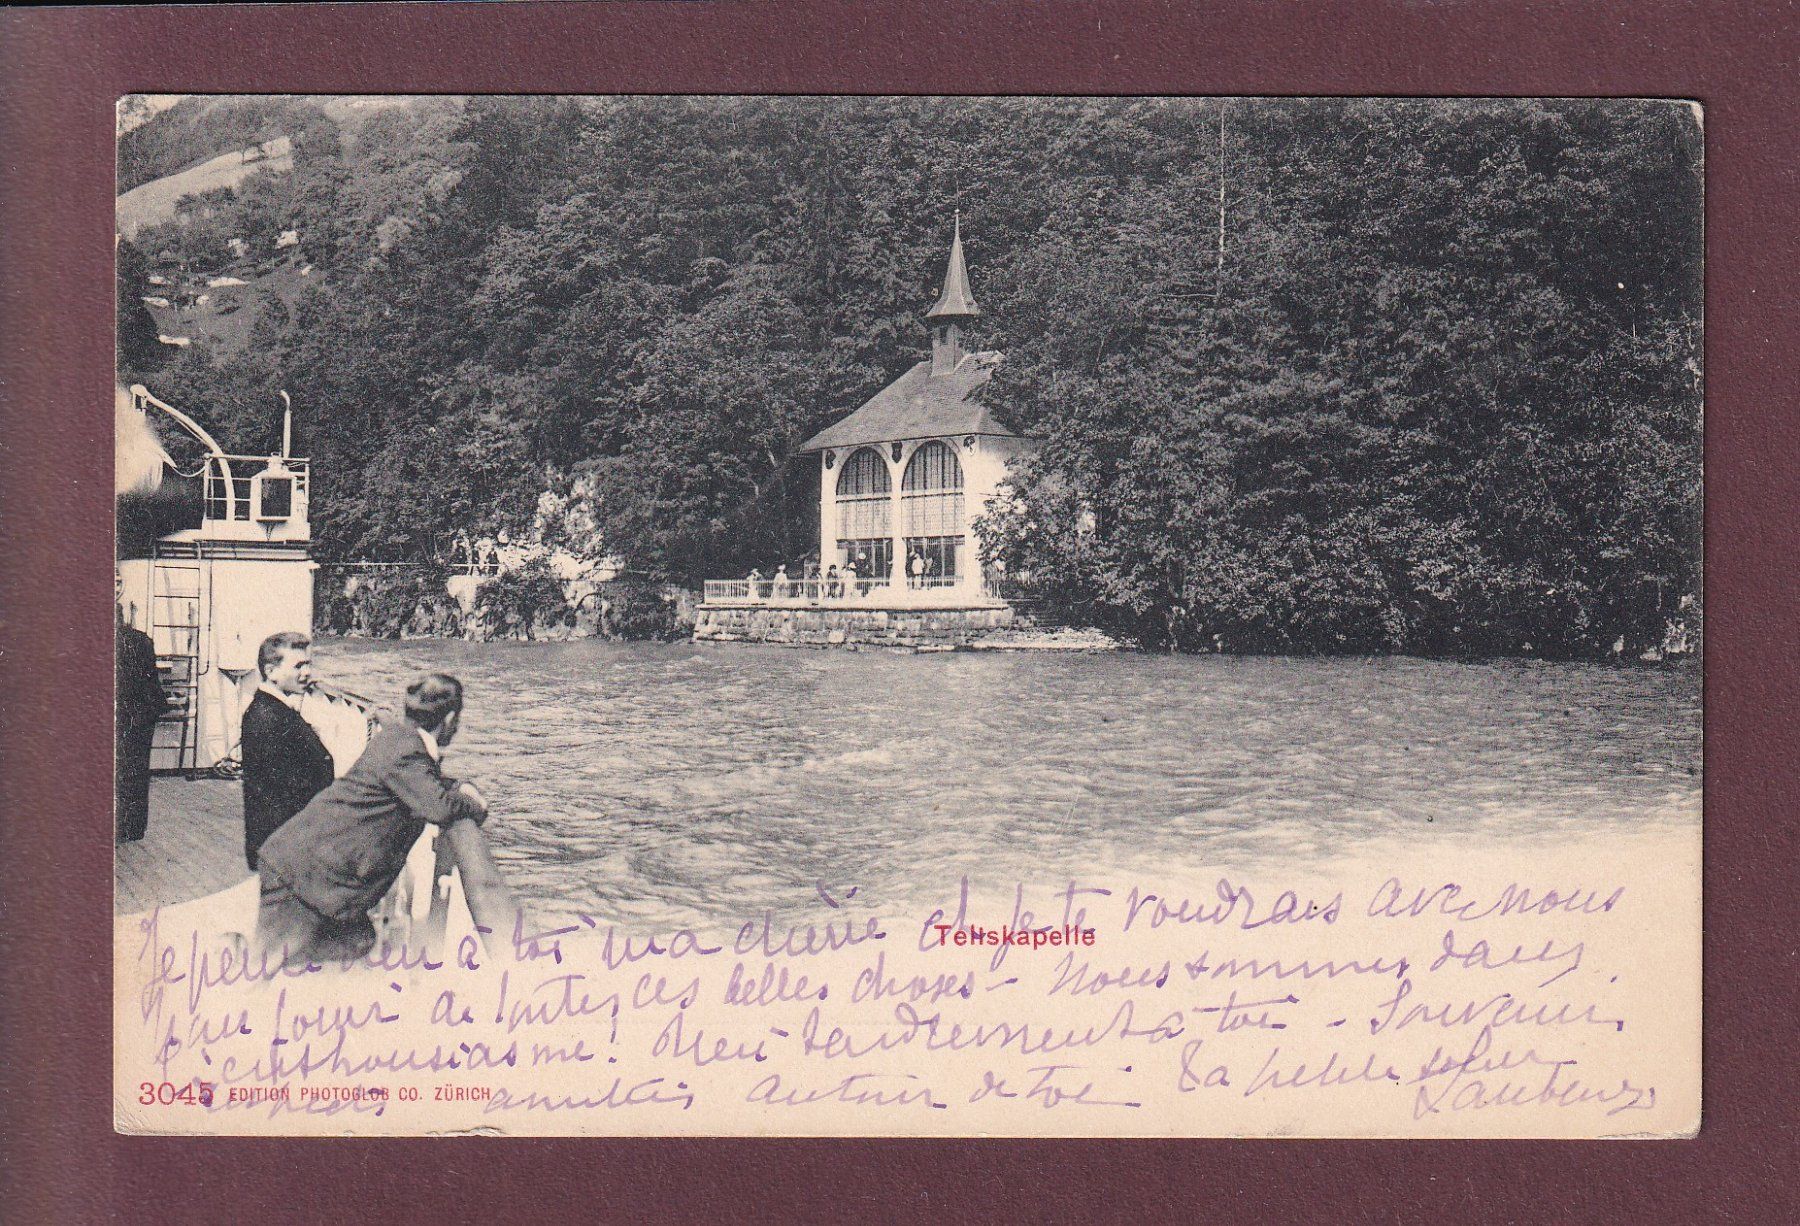 Je pense bien à toi ma chérie et je te voudrais avec nous
Tellskapelle
pour jouir de toutes ces belles choses - Nous sommes dans
l'enthousiasme! Bien tendrement à toi - Souvenirs
3045 EDITION PHOTOGLOB CO. ZÜRICH
amitiés autour de toi Ta petite sœur